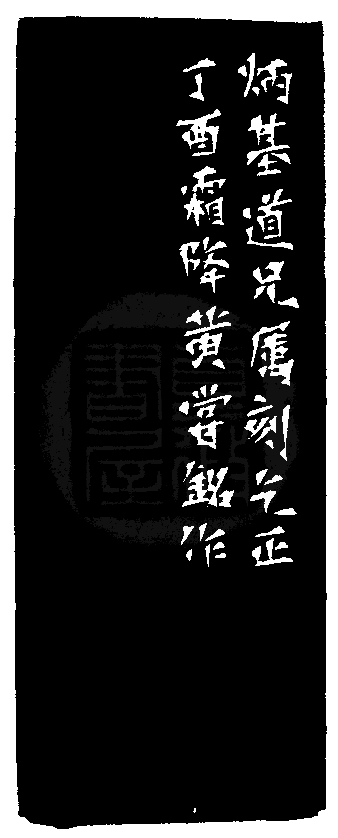 炳基道兄属刻乞正
丁酉霜降黄嘗銘作